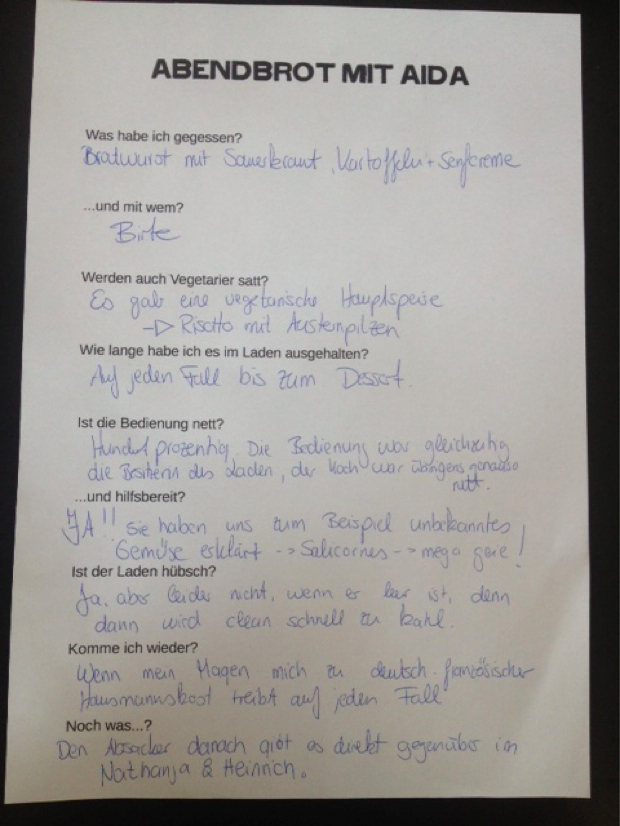 ABENDBROT MIT AIDA
Was habe ich gegessen?
Bratwurst mit Sauerkraut, Kartoffeln + Senfcreme
...und mit wem?
Birte
Werden auch Vegetarier satt?
Es gab eine vegetarische Hauptspeise
-> Risotto mit Austernpilzen
Wie lange habe ich es im Laden ausgehalten?
Auf jeden Fall bis zum Dessert.
Ist die Bedienung nett?
Hundert prozentig. Die Bedienung war gleichzeitig
die Besitzerin des Laden, der Koch war übrigens genauso
nett.
...und hilfsbereit?
JA!! Sie haben uns zum Beispiel unbekanntes
Gemüse erklärt -> Salicornes -> mega geil!
Ist der Laden hübsch?
Ja, aber leider nicht, wenn er leer ist, denn
dann wird clean schnell zu kahl.
Komme ich wieder?
Wenn mein Magen mich zu deutsch-französischer
Hausmannskost treibt auf jeden Fall
Noch was...?
Den Absacker danach gibt es direkt gegenüber im
Nathanja & Heinrich.